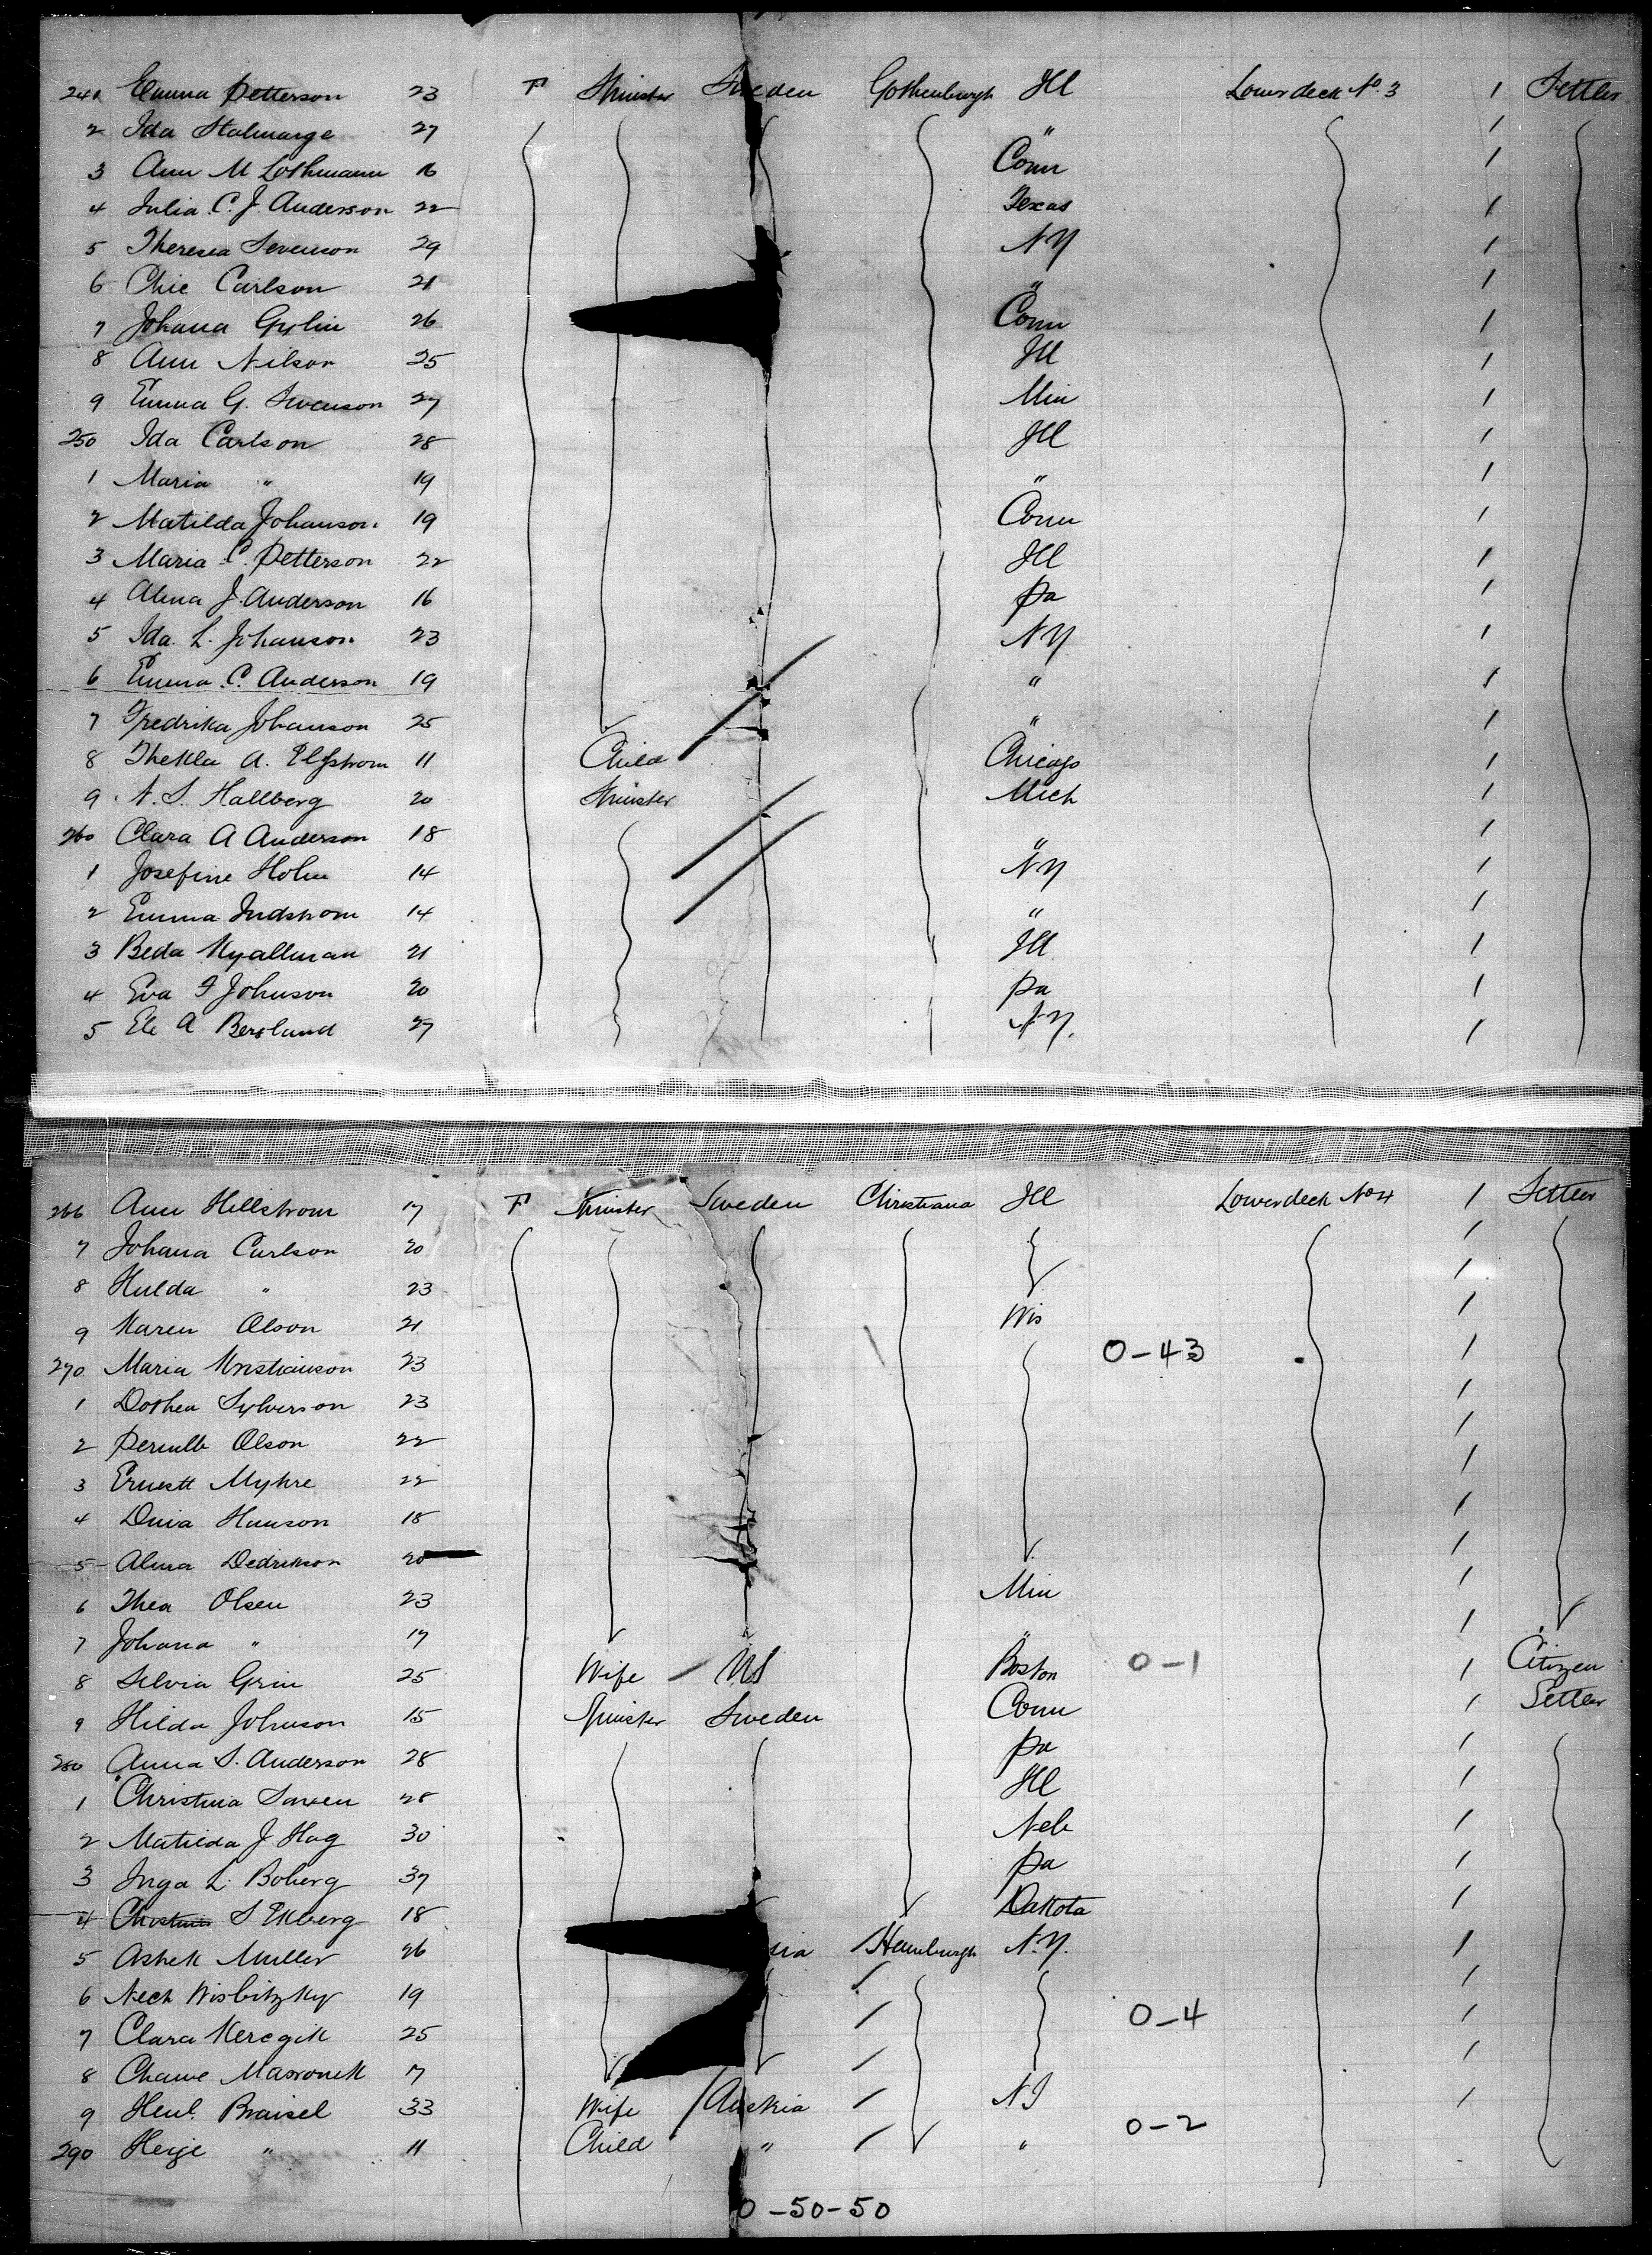 241 Emma Petterson 23 F Spinster Sweden Gothenburgh Ill Lower deck No. 3 1 Settler
2 Ida 27 " 1
3 Ann M Lothmann 16 Conn 1
4 Julia C. J. Anderson 22 Texas 1
5 Theresia Svenson 29 NY 1
6 Chie Carlson 21 " 1
7 Johana Gyslin 26 Conn 1
8 Ann Nilson 25 Ill 1
9 Emma G. Swenson 27 Min 1
250 Ida Carlson 28 Ill 1
1 Maria " 19 " 1
2 Matilda Johanson 19 Conn 1
3 Maria C. Petterson 22 Ill 1
4 Alma J. Anderson 16 Pa 1
5 Ida L. Johanson 23 NY 1
6 Emma C. Anderson 19 " 1
7 Fredrika Johanson 25 " 1
8 Thekla A. Elfstrom 11 Child Chicago 1
9 A. S. Hallberg 20 Spinster Mich 1
260 Clara A Anderson 18 " 1
1 Josefine Holm 14 NY 1
2 Emma Indstrom 14 " 1
3 Beda Kyallman 21 Ill 1
4 Eva F Johnson 20 Pa 1
5 Ele A Berglund 27 N.Y. 1
266 Ann Hillstrom 17 F Spinster Sweden Christiana Ill Lower deck No 4 1 Settler
7 Johana Carlson 20 1
8 Hulda " 23 1
9 Karen Olson 21 Wis 1
270 Maria Kristianson 23 0-43 1
1 Dothea Sylverson 23 1
2 Pernille Olson 22 1
3 Ernestt Myhre 22 1
4 Dina Hanson 18 1
5 Alma Dedrikson 20 1
6 Thea Olsen 23 Min 1
7 Johana " 17 " 1
8 Silvia Grin 25 Wife US Boston 0-1 1 Citizen
9 Hilda Johnson 15 Spinster Sweden Conn 1 Settler
280 Anna S. Anderson 28 Pa 1
1 Christina 28 Ill 1
2 Matilda J Hag 30 Neb 1
3 Inga L. Boberg 37 Pa 1
4 S Ekberg 18 Dakota 1
5 Ashek Muller 26 sia Hamburgh N.Y. 1
6 Nech Wisbitzky 19 1
7 Clara Keregik 25 0-4 1
8 Chawe Masronek 17 1
9 Heul. Braisel 33 Wife Austria NJ 1
290 Heije " 11 Child " " 0-2
0-50-50